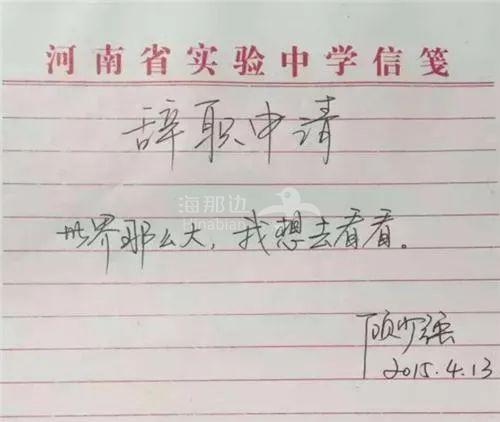 河南省实验中学信笺
辞职申请
海那边
Hinabian
世界那么大，我想去看看。
顾少强
2015.4.13